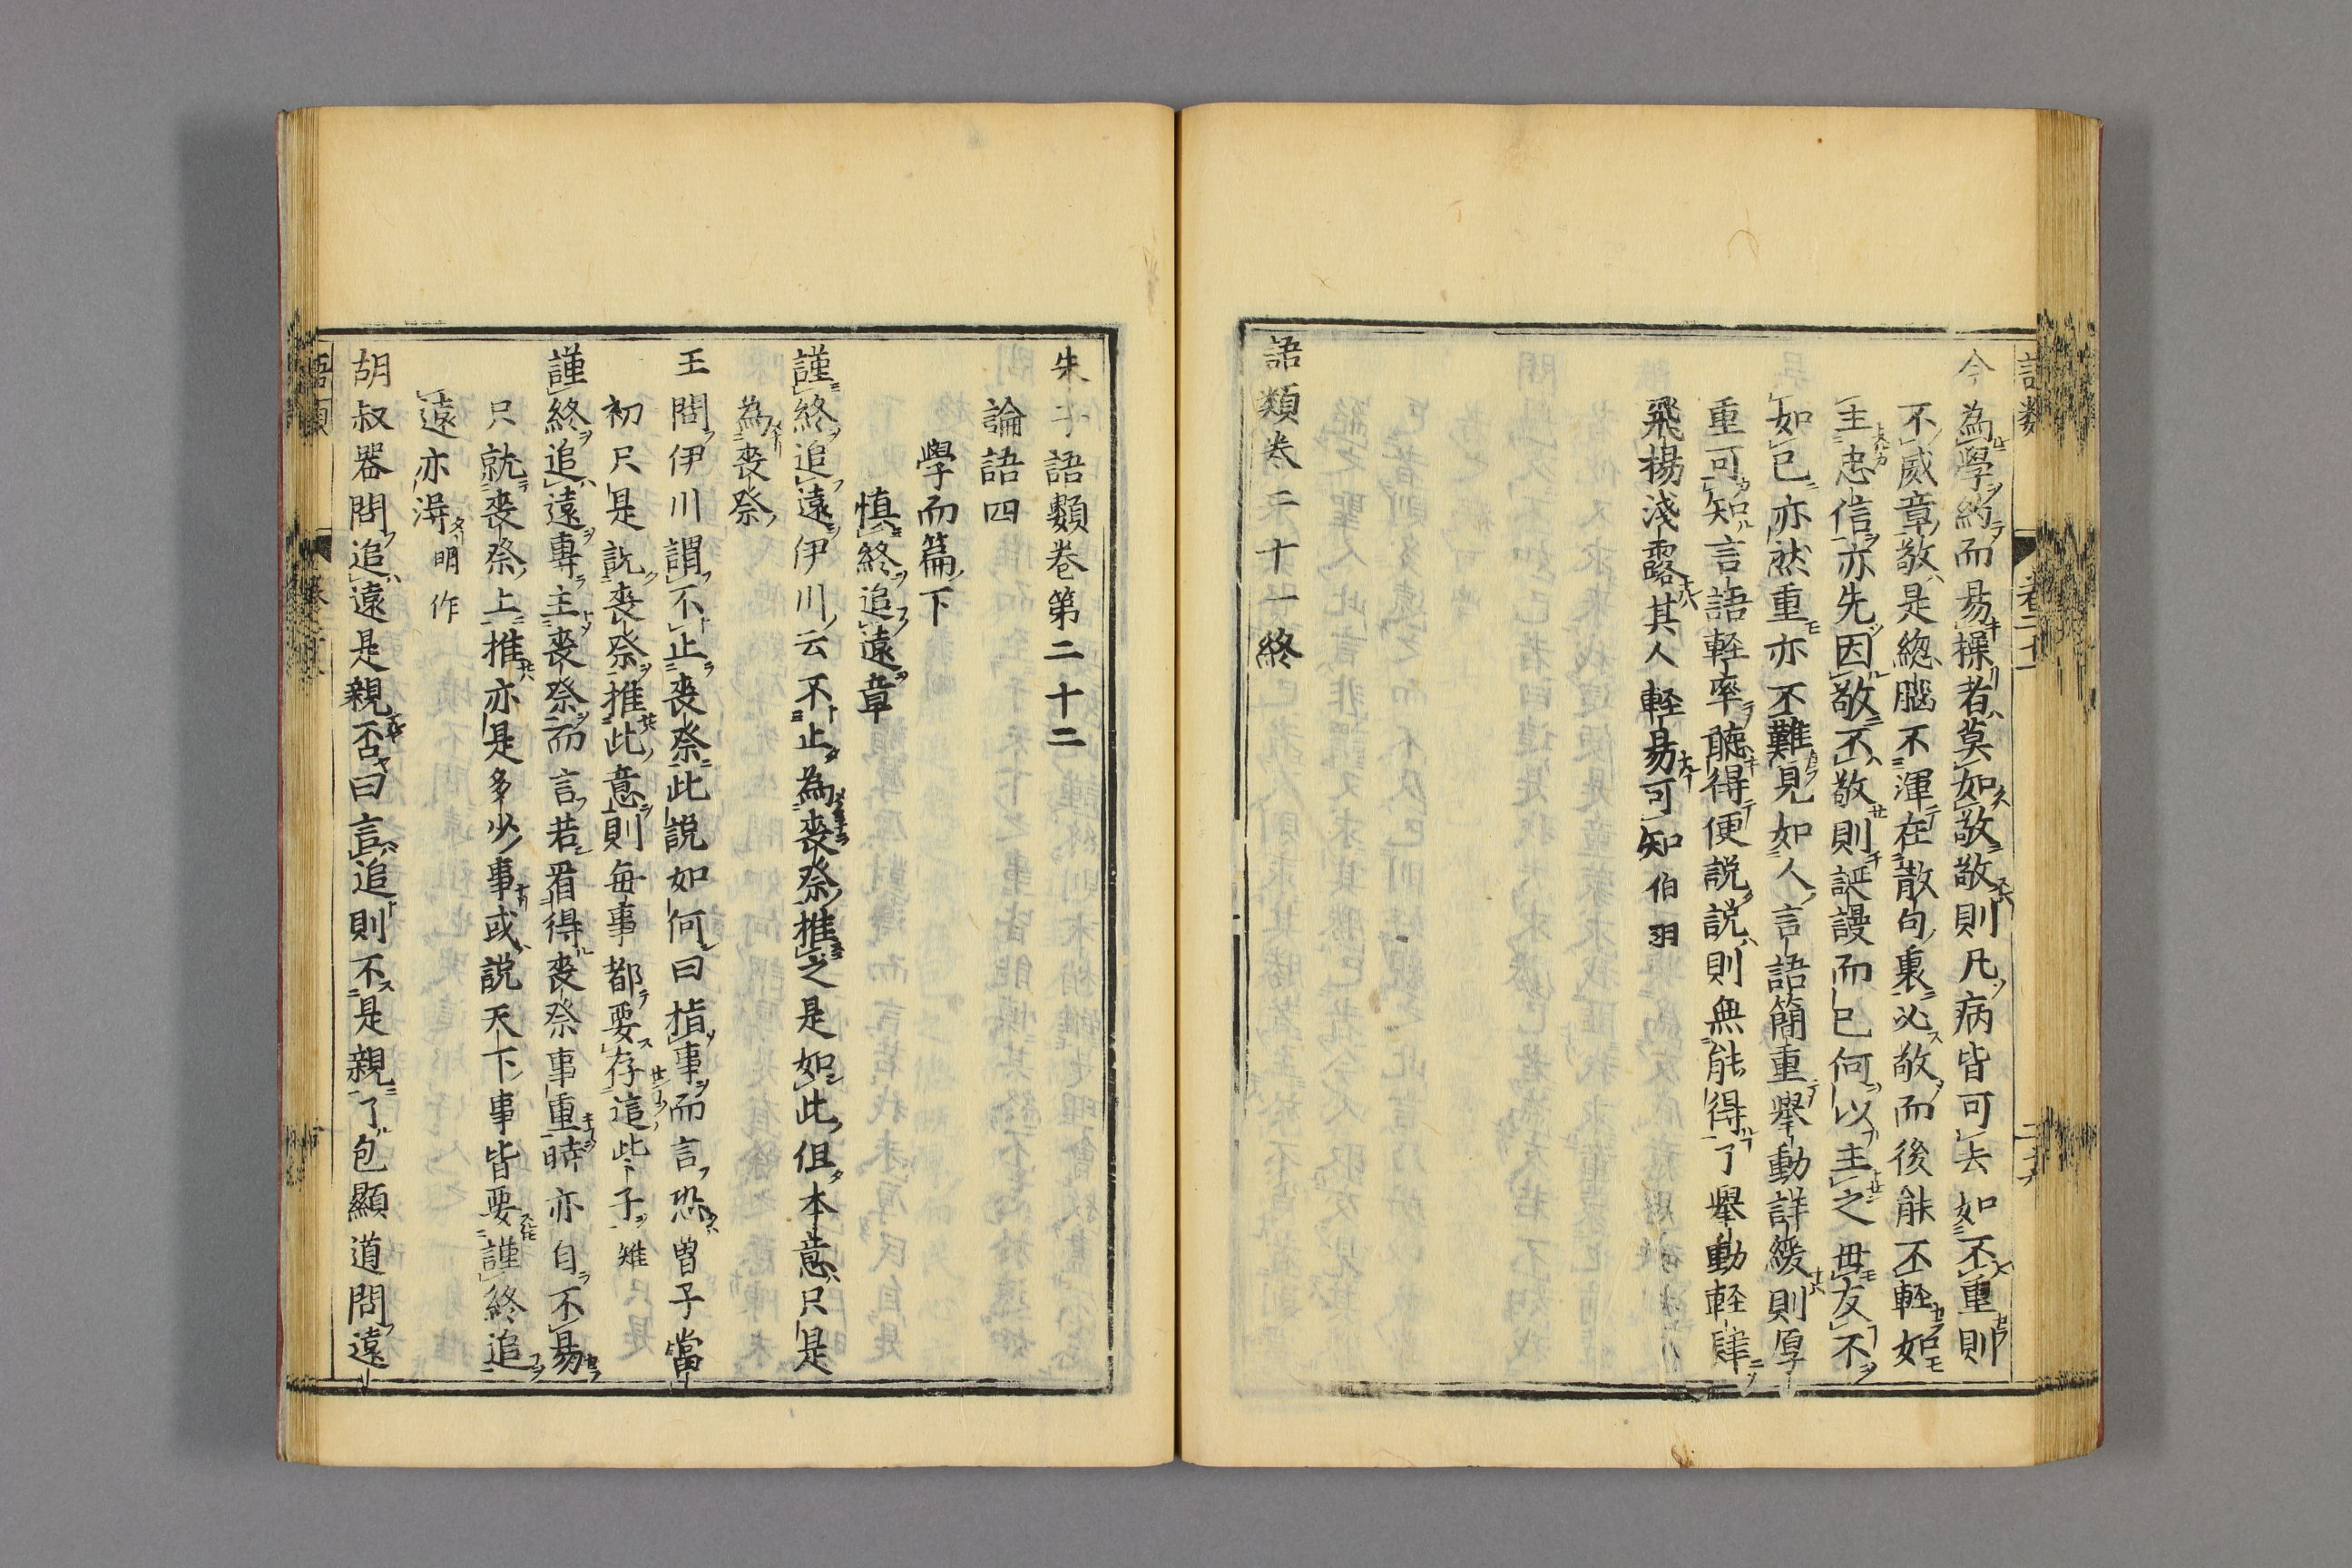 今為學約而易操者莫如敬敬則凡病皆可去如不重則
不威章敬是緫腦不渾在散句裏必敬而後能不輕如
主忠信亦先因敬不敬則誕謾而已何以主之毋友不
如已亦然重亦不難見如人言語簡重舉動詳緩則厚
重可知言語輕率聽得便說說則無能得了舉動輕肆
飛揚淺露其人輕易可知 伯羽
語類卷二十一終
朱子語類卷第二十二
論語四
學而篇下
慎終追遠章
謹終追遠伊川云不止為喪祭推之是如此但本意只是
為喪祭
王問伊川謂不止喪祭此說如何曰指事而言恐曾子當
初只是說喪祭推此意則每事都要存這些子 雉
謹終追遠專主喪祭而言若看得喪祭事重時亦自不易
只就喪祭上推亦是多少事或說天下事皆要謹終追
遠亦得 明作
胡叔器問追遠是親否曰言追則不是親了包顯道問遠